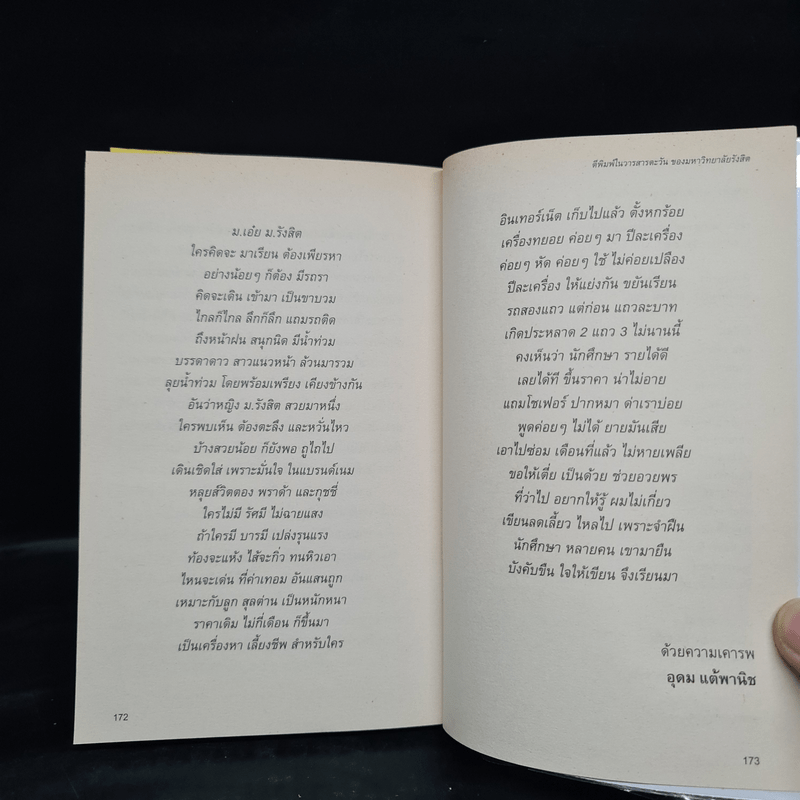 ม.เอ๋ย ม.รังสิต
ใครคิดจะ มาเรียน ต้องเพียรหา
อย่างน้อยๆ ก็ต้อง มีรถรา
คิดจะเดิน เข้ามา เป็นขาบวม
ไกลก็ไกล ลึกก็ลึก แถมรถติด
ถึงหน้าฝน สนุกนิด มีน้ำท่วม
บรรดาดาว สาวแนวหน้า ล้วนมารวม
ลุยน้ำท่วม โดยพร้อมเพรียง เคียงข้างกัน
อันว่าหญิง ม.รังสิต สวยมาหนึ่ง
ใครพบเห็น ต้องตะลึง และหวั่นไหว
บ้างสวยน้อย ก็ยังพอ ถูไถไป
เดินเชิดใส่ เพราะมั่นใจ ในแบรนด์เนม
หลุยส์วิตตอง พราด้า และกุชชี่
ใครไม่มี รัศมี ไม่ฉายแสง
ถ้าใครมี บารมี เปล่งรุนแรง
ท้องจะแห้ง ไส้จะกิ่ว ทนหิวเอา
ไหนจะเด่น ที่ค่าเทอม อันแสนถูก
เหมาะกับลูก สุลต่าน เป็นหนักหนา
ราคาเดิม ไม่กี่เดือน ก็ขึ้นมา
เป็นเครื่องหา เลี้ยงชีพ สำหรับใคร
172
ตีพิมพ์ในวารสารตะวัน ของมหาวิทยาลัยรังสิต
อินเทอร์เน็ต เก็บไปแล้ว ตั้งหกร้อย
เครื่องทยอย ค่อยๆ มา ปีละเครื่อง
ค่อยๆ หัด ค่อยๆ ใช้ ไม่ค่อยเปลือง
ปีละเครื่อง ให้แย่งกัน ขยันเรียน
รถสองแถว แต่ก่อน แถวละบาท
เกิดประหลาด 2 แถว 3 ไม่นานนี้
คงเห็นว่า นักศึกษา รายได้ดี
เลยได้ที ขึ้นราคา น่าไม่อาย
แถมโชเฟอร์ ปากหมา ด่าเราบ่อย
พูดค่อยๆ ไม่ได้ ยายมันเสีย
เอาไปซ่อม เดือนที่แล้ว ไม่หายเพลีย
ขอให้เตี่ย เป็นด้วย ช่วยอวยพร
ที่ว่าไป อยากให้รู้ ผมไม่เกี่ยว
เขียนลดเลี้ยว ไหลไป เพราะจำฝืน
นักศึกษา หลายคน เขามายืน
บังคับขืน ใจให้เขียน จึงเรียนมา
ด้วยความเคารพ
อุดม แต้พานิช
173